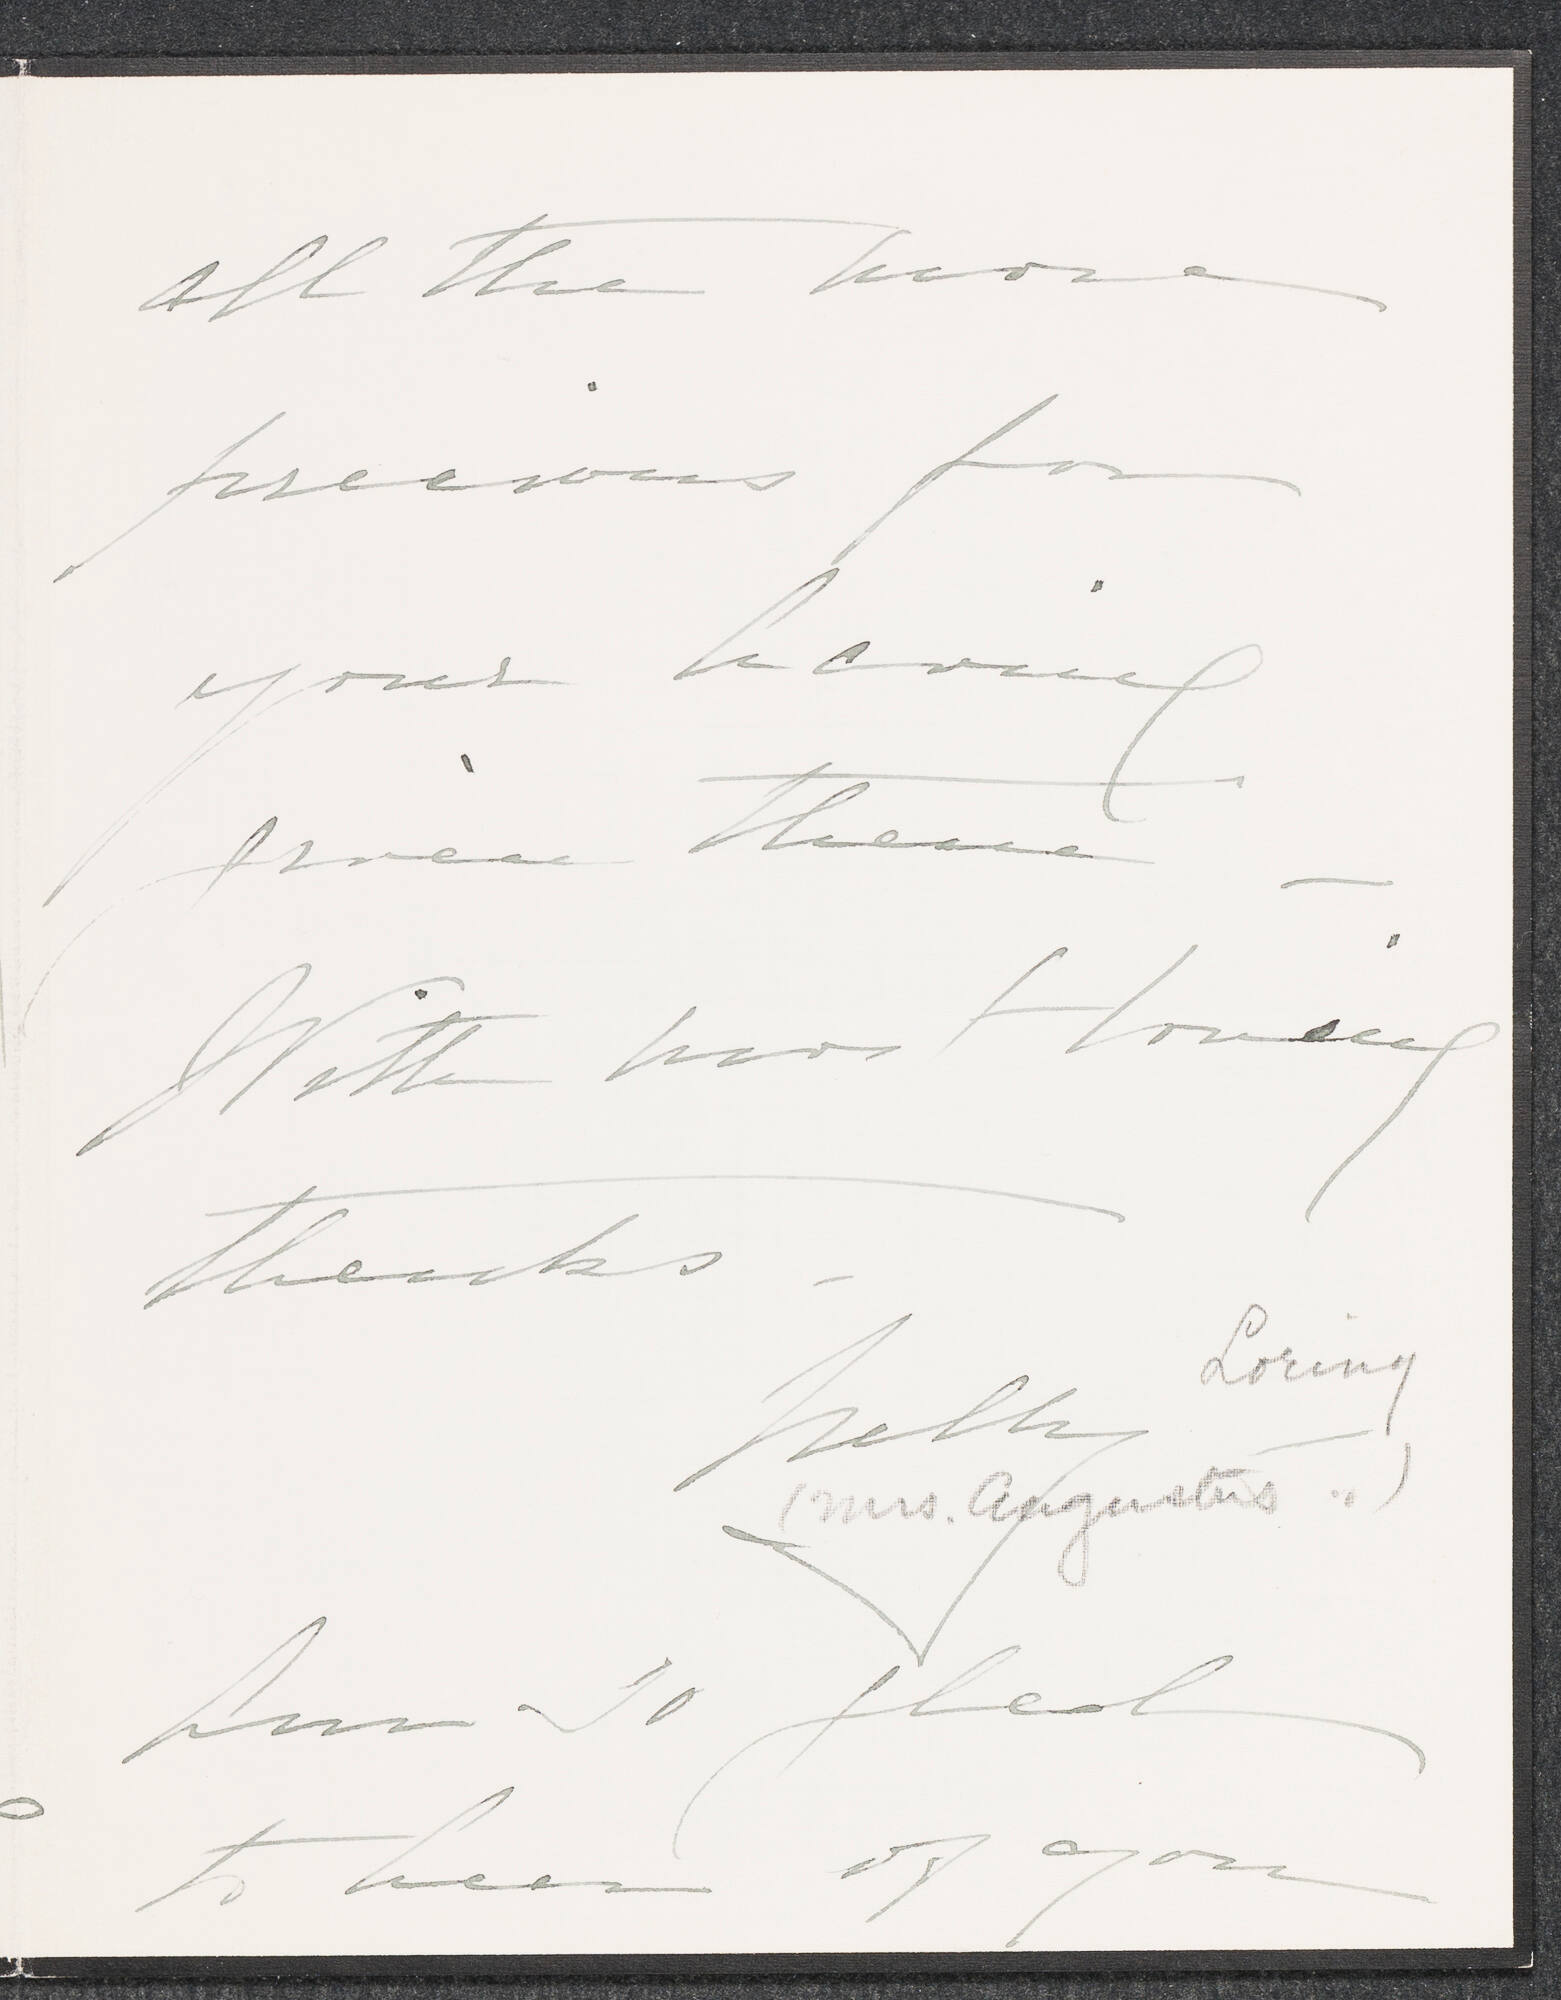 all the more
precious for
your having
given them —
With most loving
thanks —
Nelly Loring
(Mrs. Augustus ")
Am so glad
to hear of you